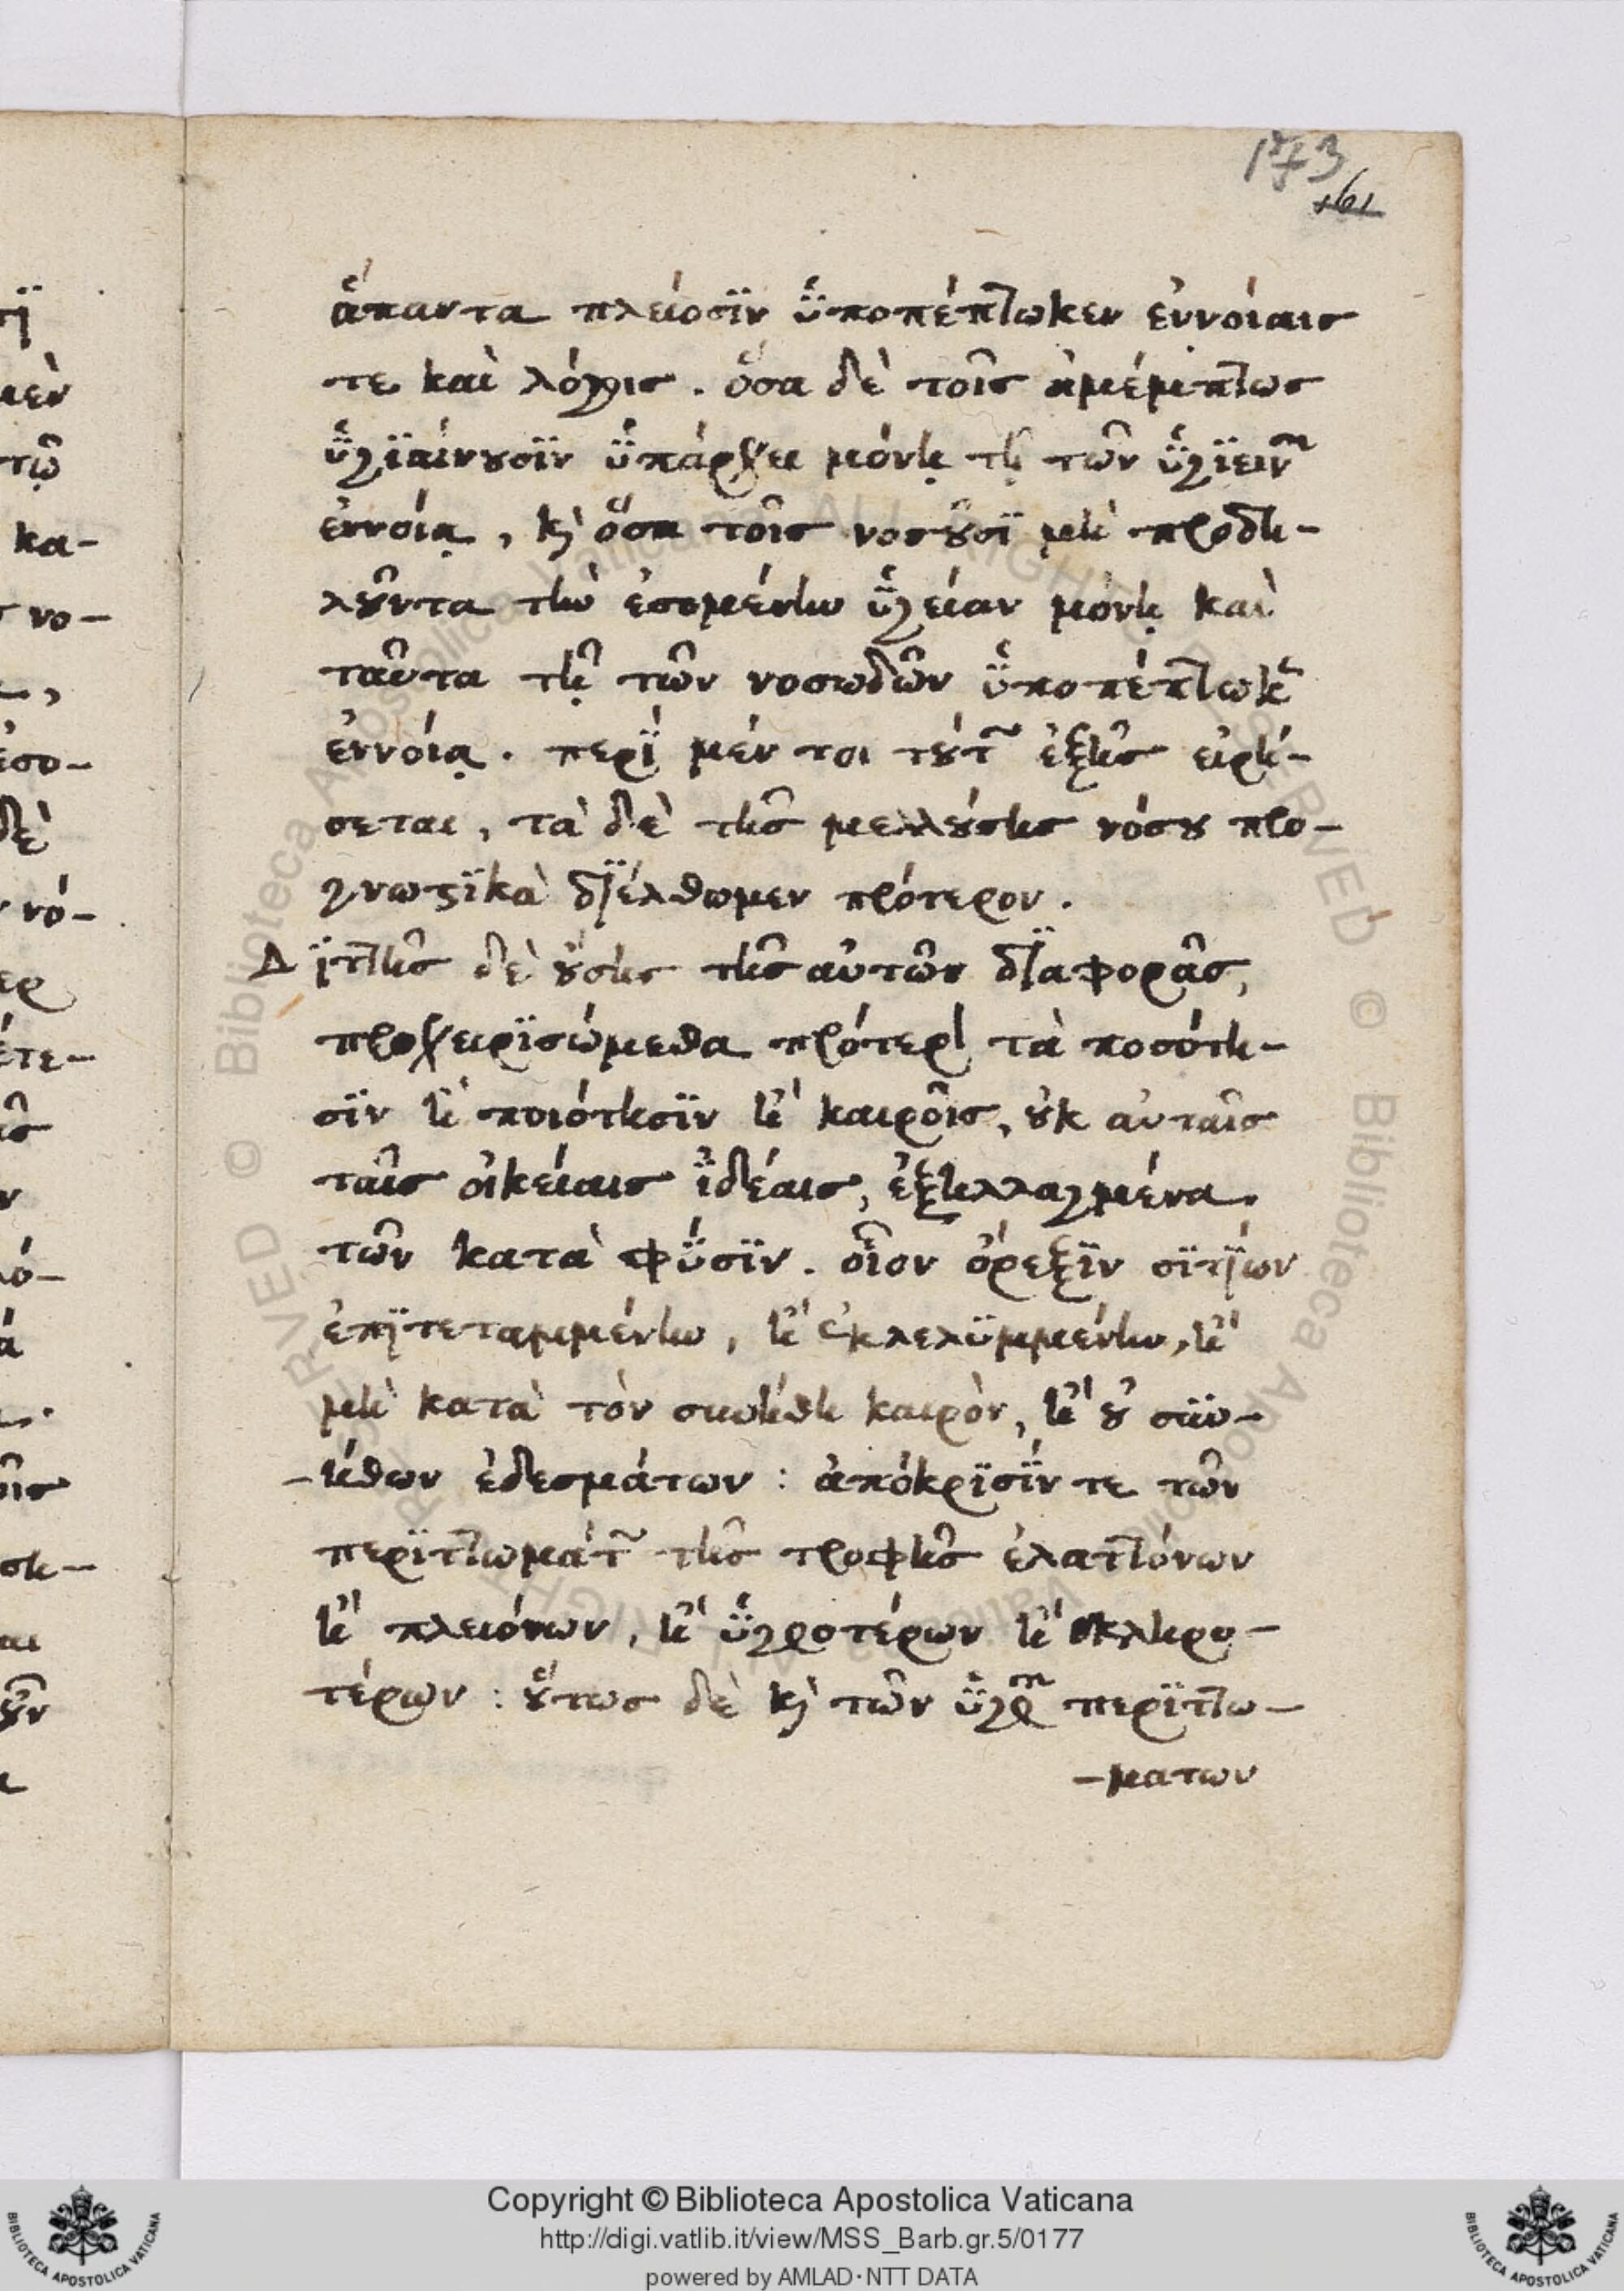 173
161
ἅπαντα πλείοσϊν ὕποπέπτωκεν ἐννοίαις
τε καὶ λόγοις. ὅσα δὲ τοῖς ἀμέμπτως
ὑγϊαίνουσϊν ὑπάρχει μόνῃ τῇ τῶν ὑγϊειν
ἐννοίᾳ, κὶ ὅσα τοῖς νοσοῦσϊ μὴ προδη-
λοῦντα τὴν ἐσομένην ὑγείαν μόνῃ καὶ
ταῦτα τῇ τῶν νοσωδῶν ὑποπέπτωκε
ἐννοίᾳ. περϊ μέν τοι τούτ ἑξῆς εἰρή-
σεται, τὰ δὲ τῆς μελλούσης νόσου προ-
γνωστϊκὰ δϊέλθωμεν πρότερον.
Δϊττῆς δὲ οὔσης τῆς αὐτῶν δϊαφορᾶς,
προχειρϊσώμεθα πρότερ τὰ ποσότη-
σϊν ἢ ποιότησϊν ἢ καιροῖς, οὐκ αὐταῖς
ταῖς οἰκείαις ἰδέαις, ἐξηλλαγμένα.
τῶν κατὰ φύσϊν. οἷον ὄρεξϊν σϊτϊων
ἐπϊτεταμμένην, ἢ ἐκλελϋμμένην, ἢ
μὴ κατὰ τὸν συνήθη καιρὸν, ἢ οὐ σϋν-
-ήθων ἐδεσμάτων : ἀπόκρϊσϊν τε τῶν
περϊττωμάτ τῆς τροφῆς ἐλαττόνων
ἢ πλειόνων, ἢ ὑγροτέρων ἢ σκληρο-
τέρων : οὕτως δὲ κὶ τῶν ὑγρ περϊττω-
-ματων
Copyright © Biblioteca Apostolica Vaticana
http://digi.vatlib.it/view/MSS_Barb.gr.5/0177
powered by AMLAD·NTT DATA
BIBLIOTECA APOSTOLICA VATICANA
BIBLIOTECA APOSTOLICA VATICANA